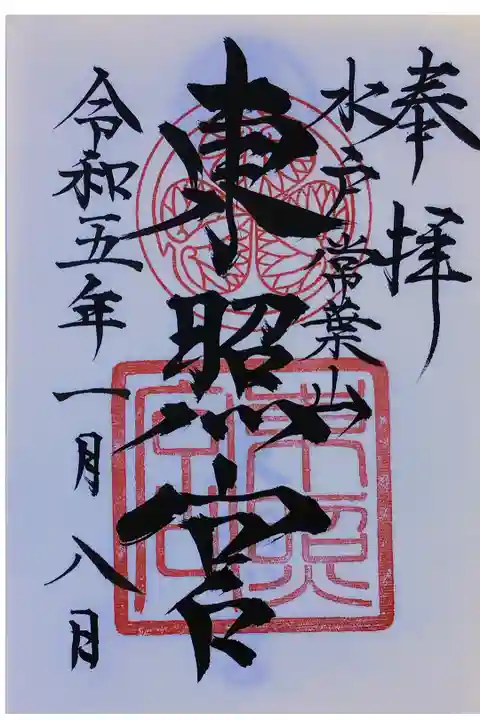 奉拝
水戸常葉山
東照宮
令和五年一月八日
東照
宮